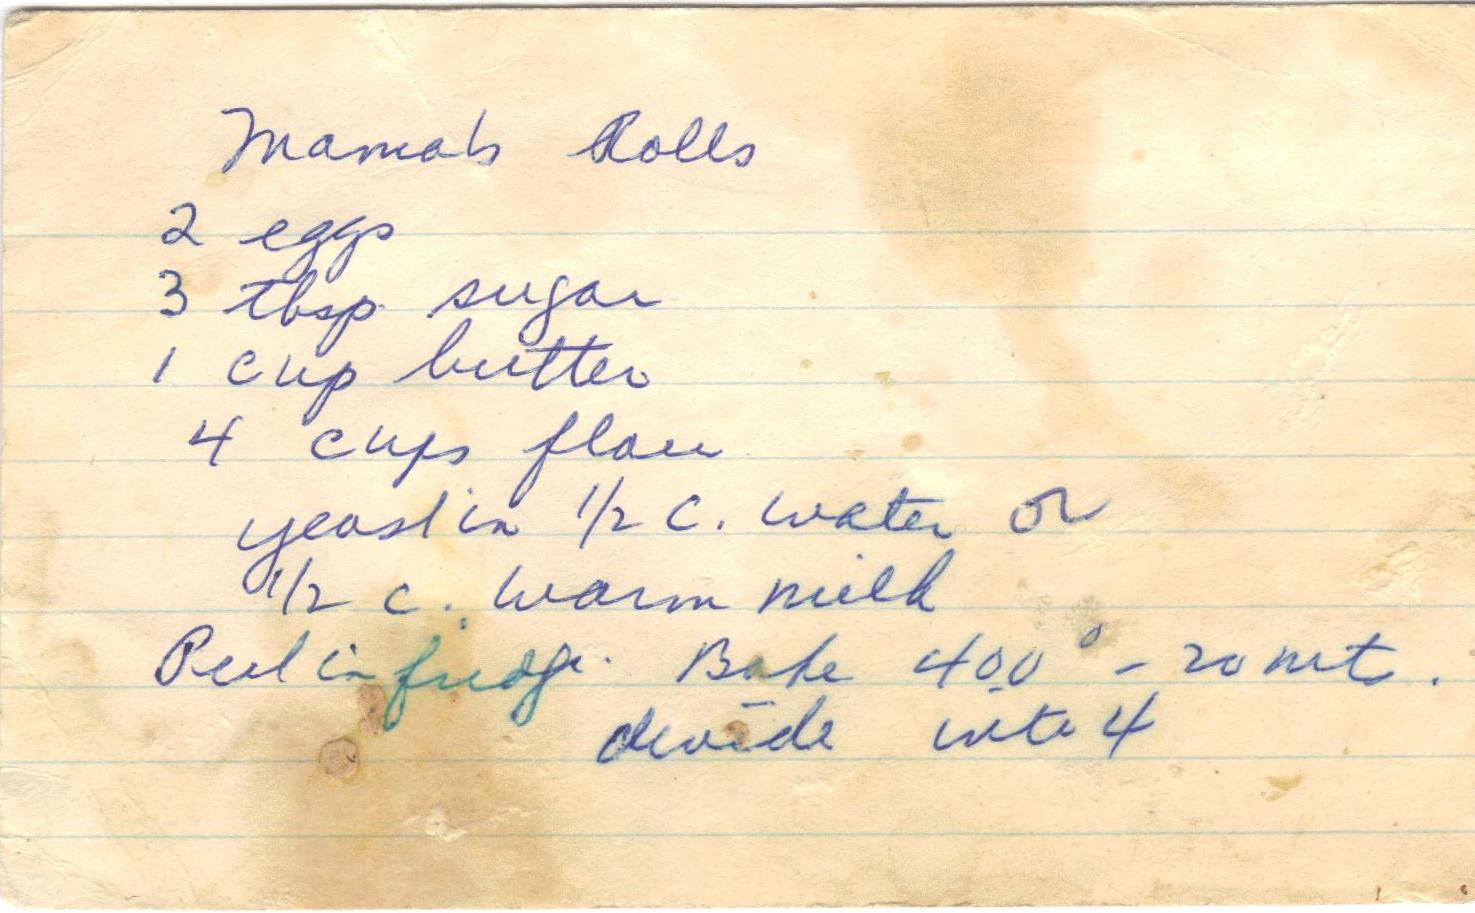 Mama's Rolls
2 eggs
3 tbsp. sugar
1 cup butter
4 cups flour
yeast in 1/2 c. water or
1/2 c. warm milk
in fridge. Bake 400° - 20
divide into 4